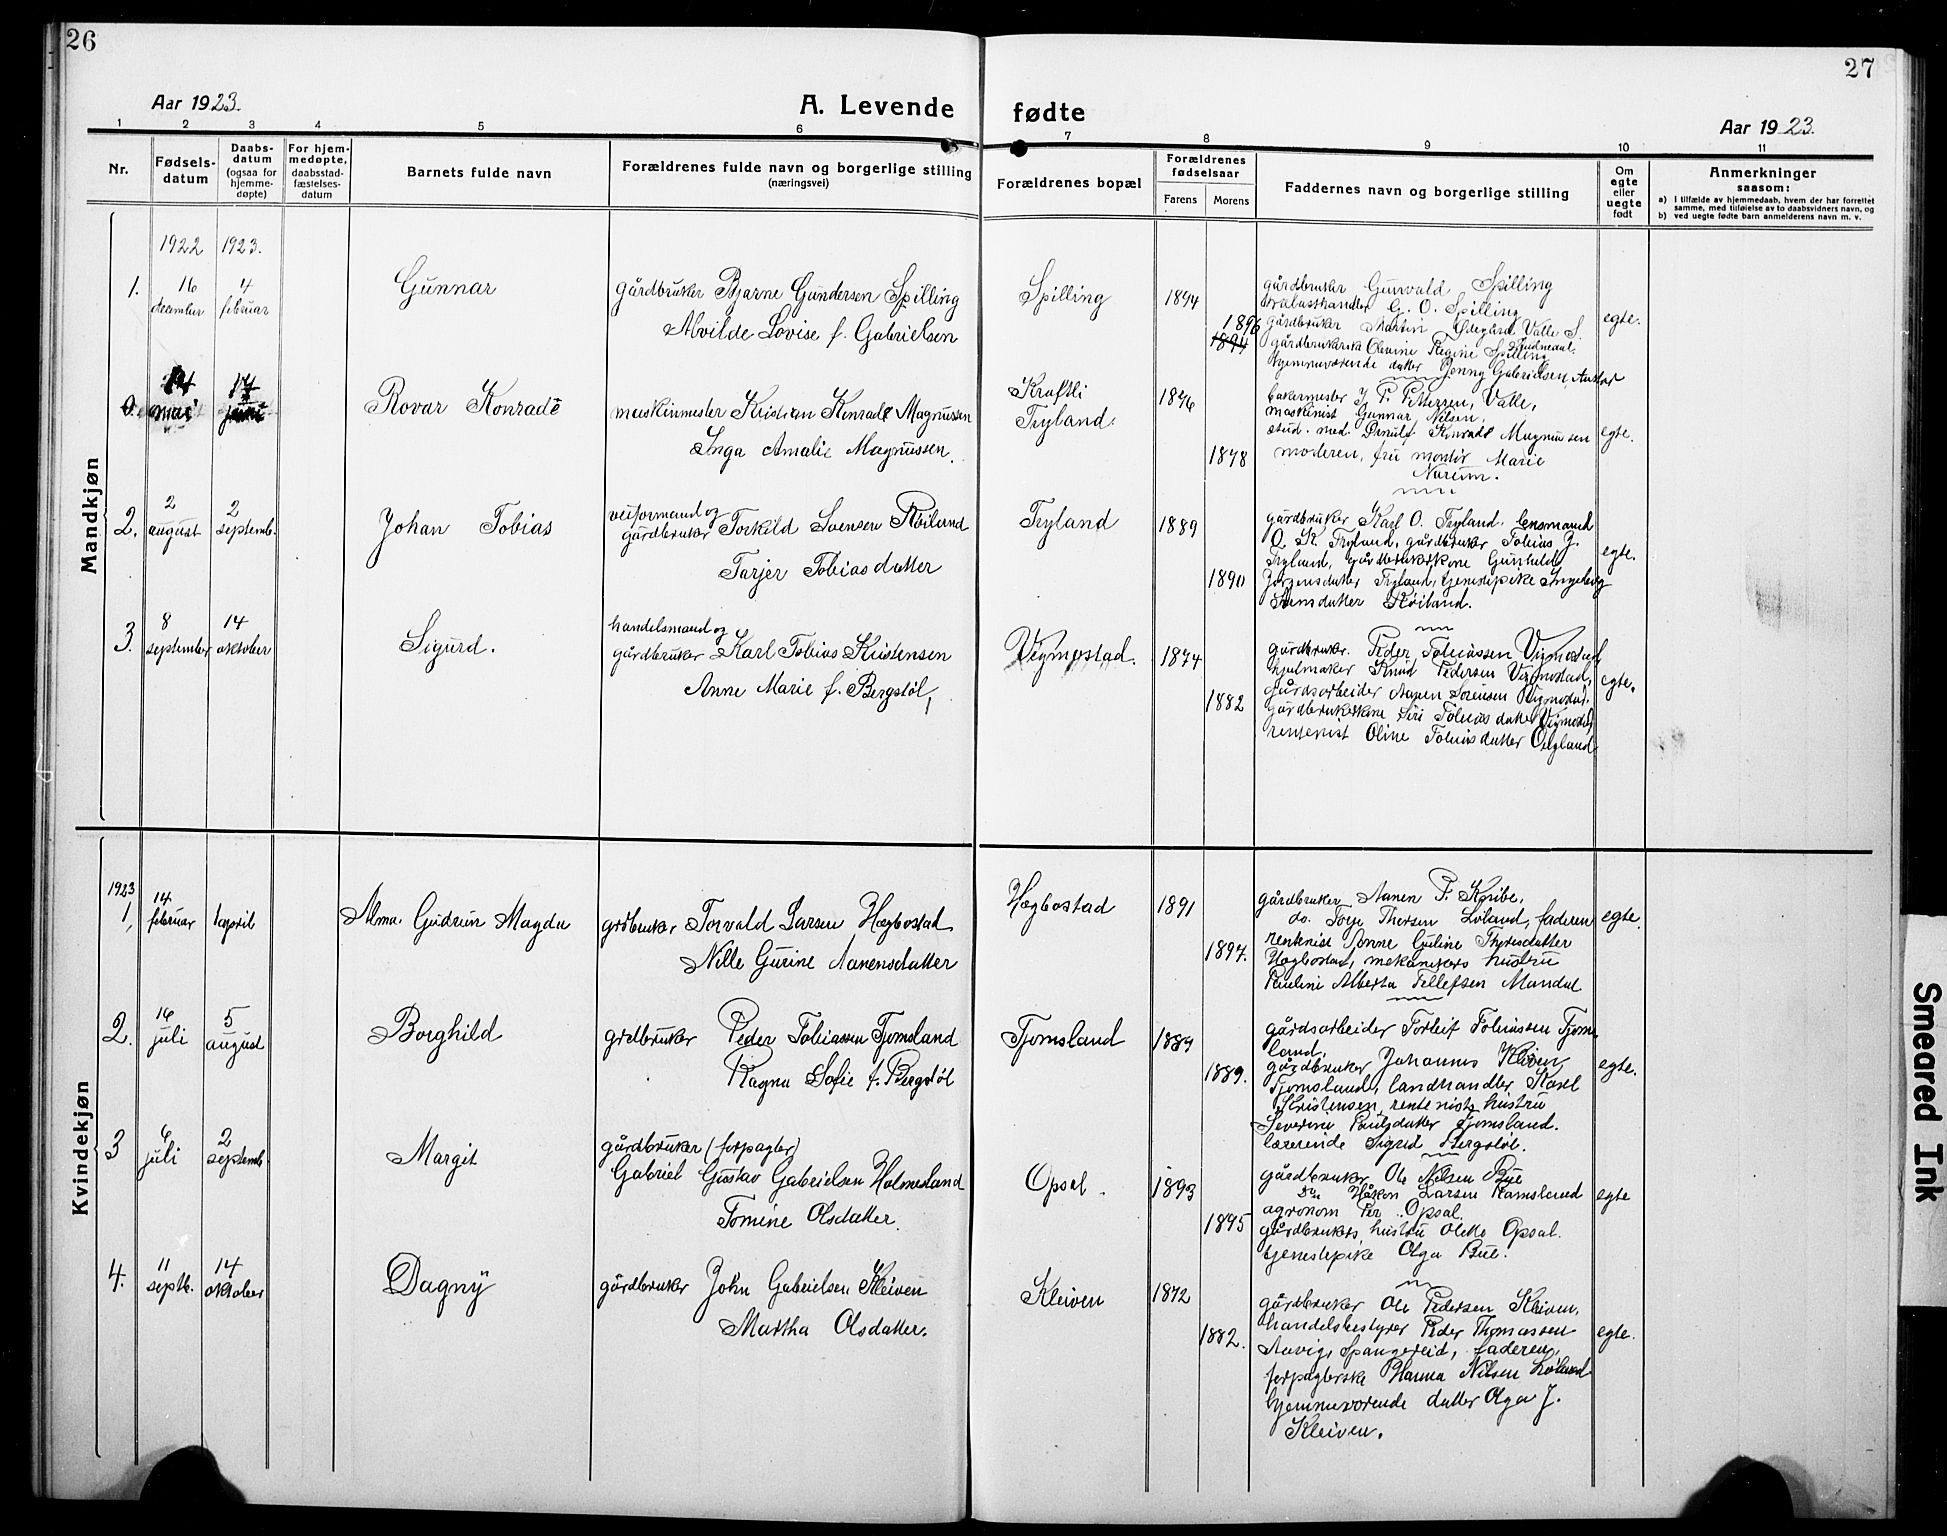 26
27
Aar 1923.
A. Levende fødte
Aar 1923.
1 2 3 4 5 6 7 8 9 10 11
Nr.
Fødsels-
datum
Daabs-
datum
(ogsaa for
hjemme-
døpte)
For hjem-
medøpte,
daabsstad-
fæstelses-
datum
Barnets fulde navn
Forældrenes fulde navn og borgerlige stilling
(næringsvei)
Forældrenes bopæl
Forældrenes
fødselsaar
Farens
Morens
Faddernes navn og borgerlige stilling
Om
egte
eller
uegte
født
Anmerkninger
saasom:
a) I tilfælde av hjemmedaab, hvem der har forrettet
samme, med tilføielse av to daabsvidners navn, og
b) ved uegte fødte barn anmelderens navn m. v.
Mandkjøn
1922 1923.
1. 16 december 4 februar
Gunnar
gårdbruker Bjarne Gundersen Spilling
Alvilde Lovise f. Gabrielsen
Spilling
1894
1896
1894
gårdbruker Gunvald Spilling
trælasthandler G. O. Spilling
gårdbruker Martin Ødegård Valle S.
gårdbrukerska Olevine Regine Spilling
hjemmeværende datter Jenny Gabrielsen,
egte.
14 mai 17 juni
Rovar Konrad
maskinmester Kristian Konrad Magnussen
Inga Amalie Magnussen.
Tryland.
1876
1878
bakermester J. P. Pettersen, Valle,
maskinist Gunnar Nilsen,
stud. med. Ørnulf Konrad Magnussen
moderen, fru montør Marie
Narum.
egte.
2. 2 august 2 septemb.
Johan Tobias
veiformand og
gårdbruker Torkild Svensen Røiland
Tarjer Tobiasdatter
Tryland
1889
1890
gårdbruker Karl O. Tryland. lensmand
O. K. Tryland, gårdbruker Tobias J.
Tryland, gårdbrukerkone Gunhild
Jørgensdatter Tryland, tjenestepike Ingeborg
Svensdatter Røiland.
egte.
3. 8 september 14 oktober
Sigurd.
handelsmand og
gårdbruker Karl Tobias Kristensen
Anne Marie f. Bergstøl,
Vigmostad.
1874
1882
gårdbruker. Peder Tobiassen Vigmostad
hjulmaker Knud Pedersen Vigmostad,
gårdsarbeider Aanen Sørensen Vigmostad.
gårdbrukerkone Siri Tobiasdatter Vigmostad,
rentenist Oline Tobiasdatter
egte.
Kvindekjøn
1923
1, 14 februar 1 april
Alma. Gudrun Magda
grdbruker Torvald Larsen Hægbostad
Nille Gurine Aanensdatter
Hægbostad
1891
1894.
gårdbruker Aanen P. Kribe,
do. Torje Thersen Løland, faderen
rentenist Anne Guline Theresdatter
Hægbostad, mekanikers hustru
Pauline Alberta Tellefsen Mandal
egte.
2. 16 juli 5 august
Borghild
grdbruker Peder Tobiassen Tjomsland
Ragna Sofie f. Bergstøl
Tjomsland
1889.
gårdsarbeider Torleif Tobiassen Tjoms-
land,
gårdbruker Johannes Kleven
Tjomsland, landhandler Karl
Kristensen, rentenists hustru
Severine Paulsdatter Tjomsland.
lærerinde Sigrid Bergstøl.
egte.
3 6 juli 2 septemb.
Margit
gårdbruker (forpagter)
Gabriel Gustav Gabrielsen Holmesland
Tomine Olsdatter.
Opsal.
1893
1895
gårdbruker Ole Nilsen Bue
Do Håkon Larsen Ramsland
agronom Per Opsal.
gårdbrukers hustru Opsal.
tjenestepike Olga Bue.
egte
4. 11 septb. 14 oktober
Dagny
gårdbruker John Gabrielsen Kleiven
Martha Olsdatter.
Kleiven
1872
1882.
gårdbruker Ole Pedersen Kleiven,
handelsbestyrer Peder Thomassen
Aavig, Spangereid, faderen,
forpagterske Hanna Nilsen Løland
hjemmeværende datter Olga J.
Kleiven.
egte.
Smeared Ink